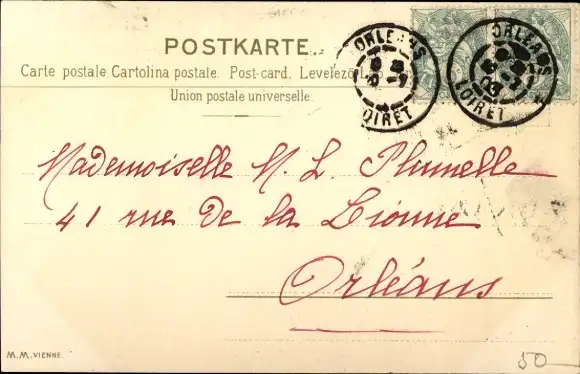 POSTKARTE.
Carte postale Cartolina postale. Post-card. Levelezö-L
Union postale universelle.
ORLEANS
LOIRET
ORLEANS
LOIRET
Mademoiselle M. L. Plumelle
41 rue de la Lionne
Orléans
M.M. VIENNE.
50